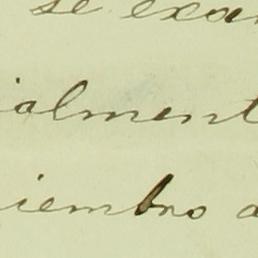 se exa
ialment
iembro a